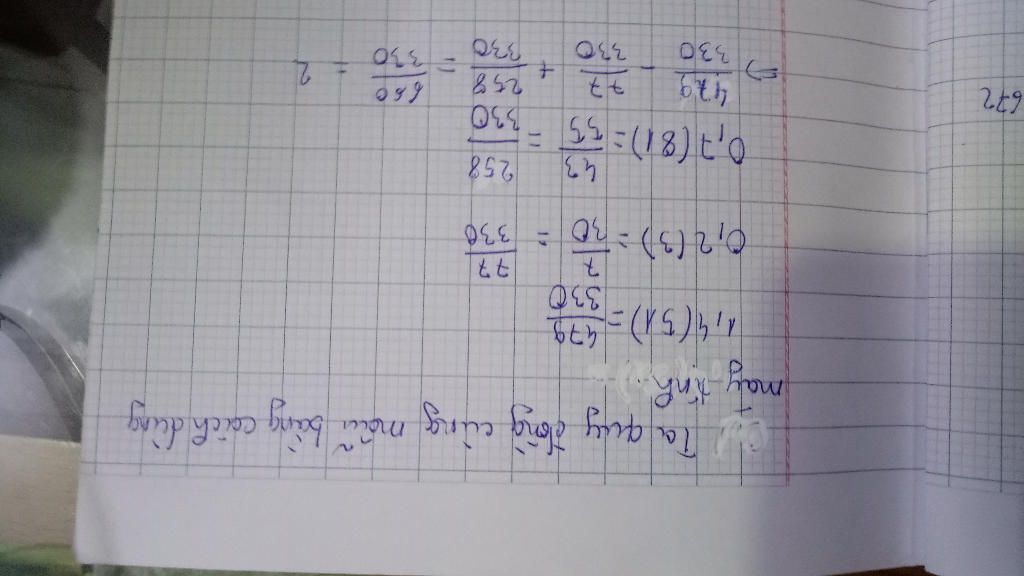 Ta quy đồng cùng mẫu bằng cách dùng
máy tính
1,4(51) = 479/330
0,2(3) = 7/30 = 77/330
0,7(81) = 43/55 = 258/330
=> 479/330 - 77/330 + 258/330 = 660/330 = 2
672